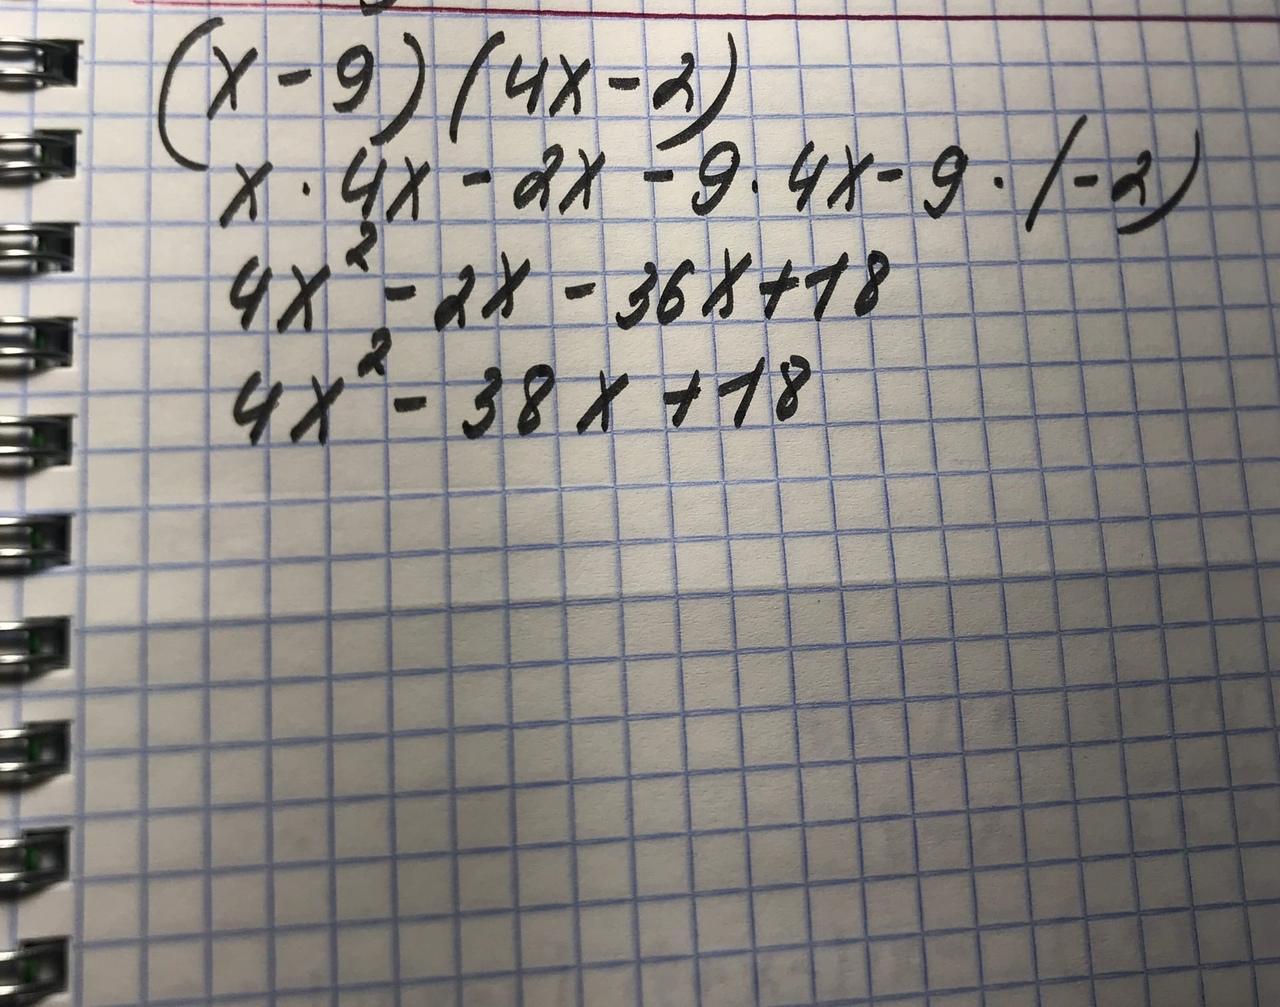 (x - 9) (4x - 2)
x · 4x - 2x - 9 · 4x - 9 · (-2)
4x² - 2x - 36x + 18
4x² - 38x + 18